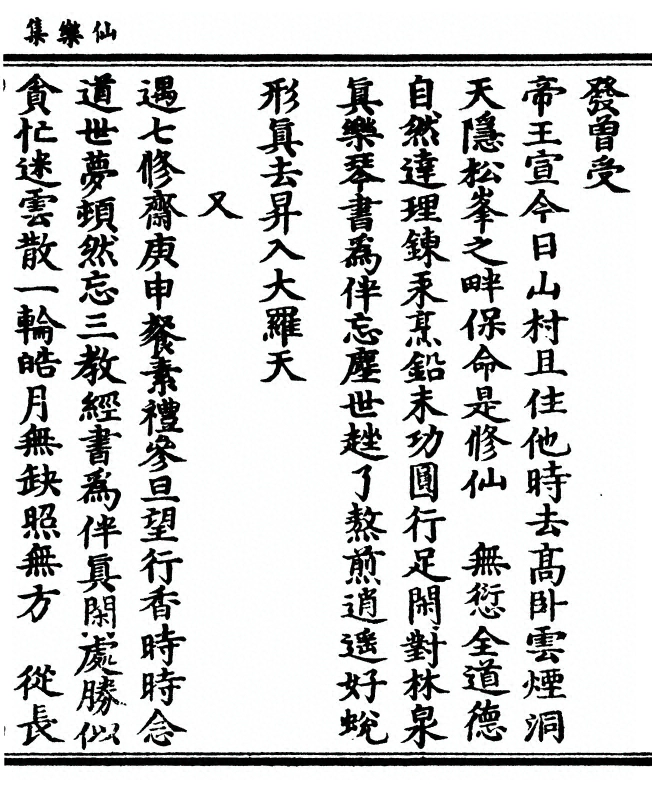 仙樂集
發曽受
帝王宣今日山村且住他時去髙卧雲煙洞
天隱松峯之畔保命是修仙　無愆全道德
自然達理鍊汞烹鉛未功圓行足閑對林泉
眞樂琴書爲伴忘塵世趖了熬煎逍遥好蛻
形眞去昇入大羅天
又
遇七修齋庚申餐素禮參旦望行香時時念
道世夢頓然忘三教經書爲伴眞閑處勝似
貪忙迷雲散一輪皓月無缺照無方　從長